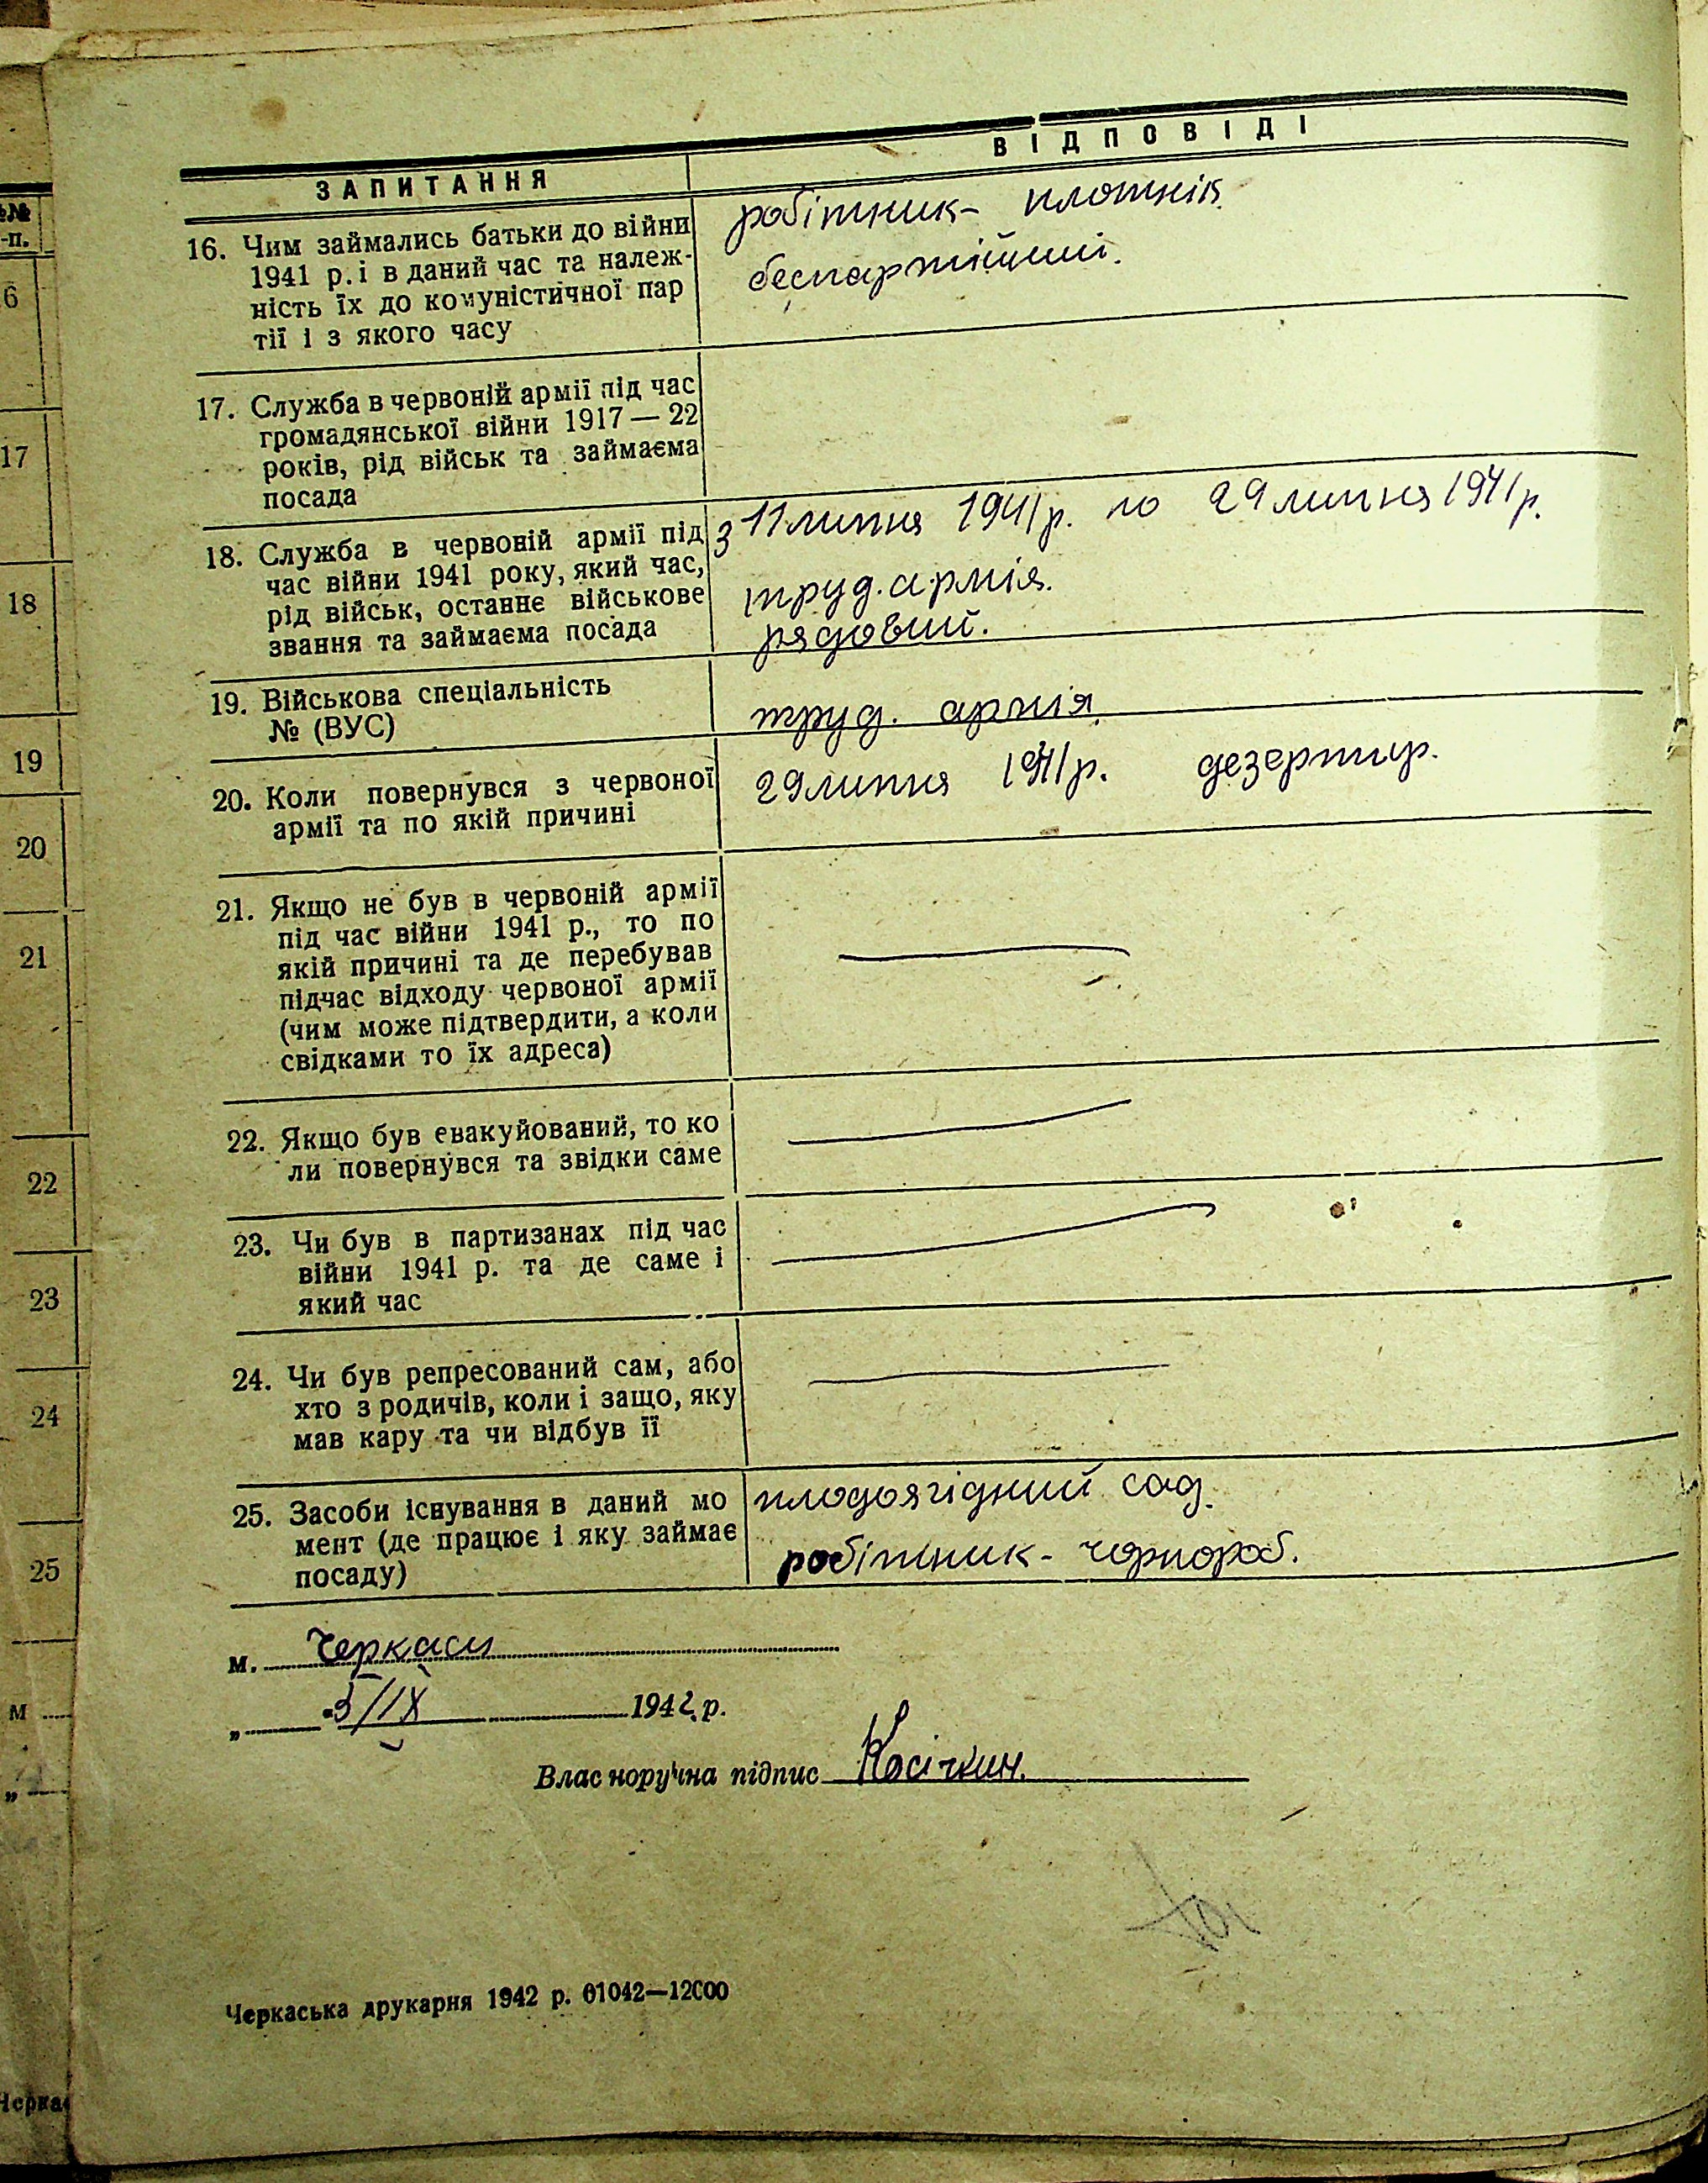 ЗАПИТАННЯ
ВІДПОВІДІ
16. Чим займались батьки до війни
1941 р. і в даний час та належ-
ність їх до комуністичної пар
тії і з якого часу
робітник- плотнік
беспартійний.
17. Служба в червоній армії під час
громадянської війни 1917—22
років, рід військ та займаєма
посада
18. Служба в червоній армії під
час війни 1941 року, який час,
рід військ, останнє військове
звання та займаєма посада
з 11 липня 1941 р. по 29 липня 1941 р.
труд. армія.
рядовий.
19. Військова спеціальність
№ (ВУС)
труд. армія
20. Коли повернувся з червоної
армії та по якій причині
29 липня 1941 р. дезертир.
21. Якщо не був в червоній армії
під час війни 1941 р., то по
якій причині та де перебував
підчас відходу червоної армії
(чим може підтвердити, а коли
свідками то їх адреса)
22. Якщо був евакуйований, то ко
ли повернувся та звідки саме
23. Чи був в партизанах під час
війни 1941 р. та де саме і
який час
24. Чи був репресований сам, або
хто з родичів, коли і защо, яку
мав кару та чи відбув її
25. Засоби існування в даний мо
мент (де працює і яку займає
посаду)
плодоягідний сад.
робітник- чорнороб.
м. Черкаси
„ 5/IX 1942 р.
Власноручна підпис Косічкин.
Черкаська друкарня 1942 р. 01042—12000
№№
-п.
6
17
18
19
20
21
22
23
24
25
м
„
Черка